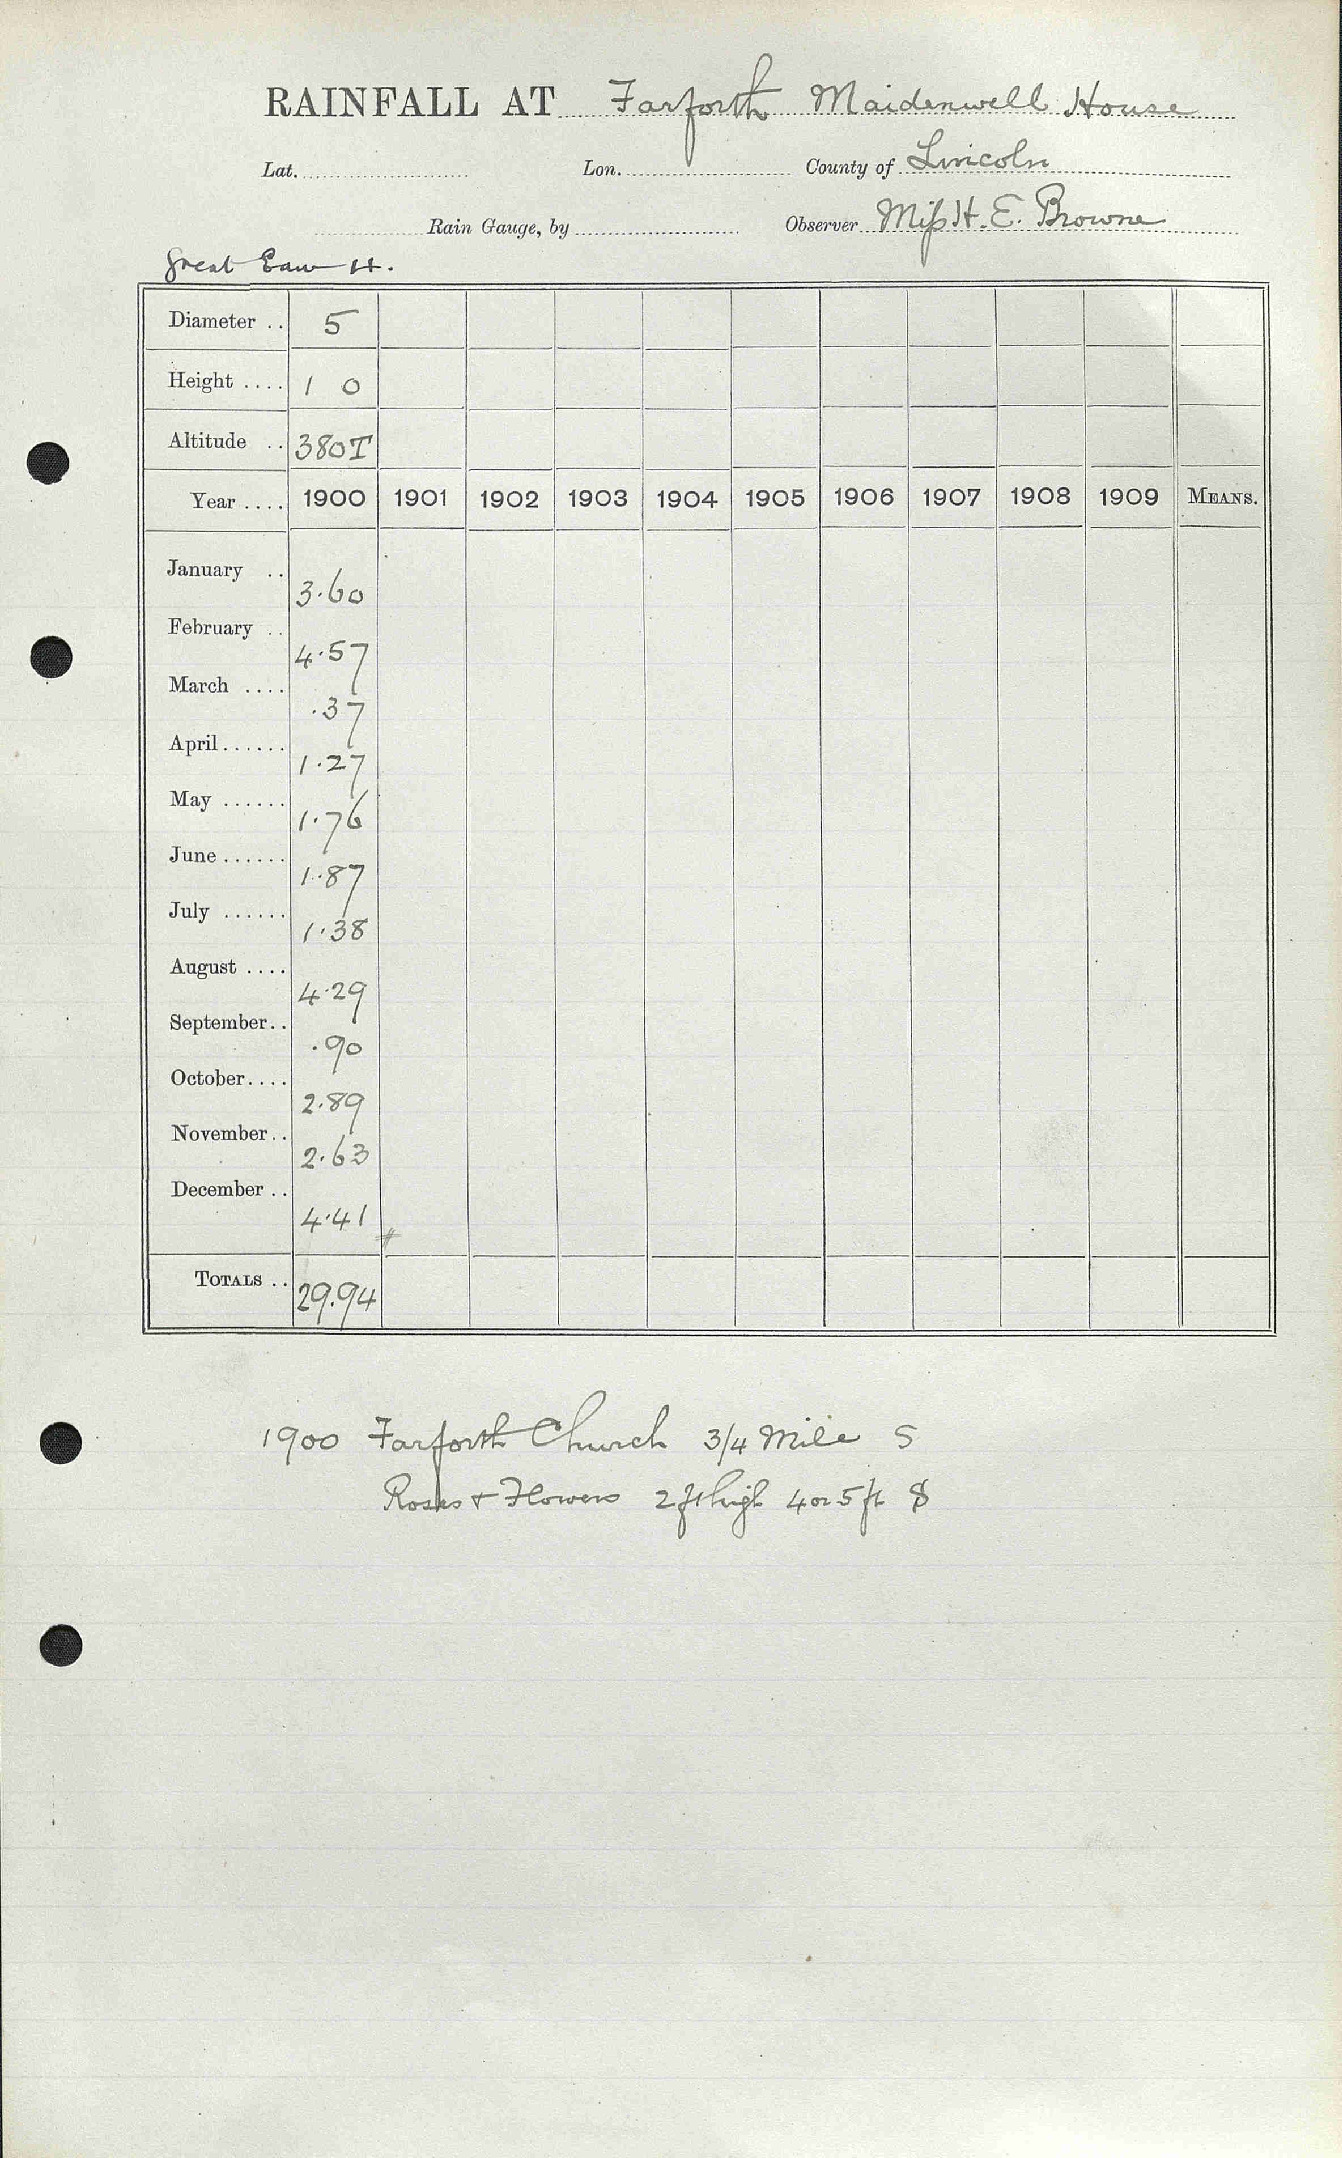 RAINFALL AT Farforth Maidenwell House
Lat. Lon. County of Lincoln
Rain Gauge, by Observer Miss H. E. Browne
Great Eau H.
Diameter .. 5
Height .... 1 0
Altitude .. 380T
Year .... 1900 1901 1902 1903 1904 1905 1906 1907 1908 1909 MEANS.
January .. 3.60
February .. 4.57
March .... .37
April...... 1.27
May ...... 1.76
June...... 1.87
July ...... 1.38
August .... 4.29
September.. .90
October.... 2.89
November.. 2.63
December .. 4.41
TOTALS .. 29.94
1900 Farforth Church 3/4 Mile S
Roses + Flowers 2 ft high 4 or 5 ft S